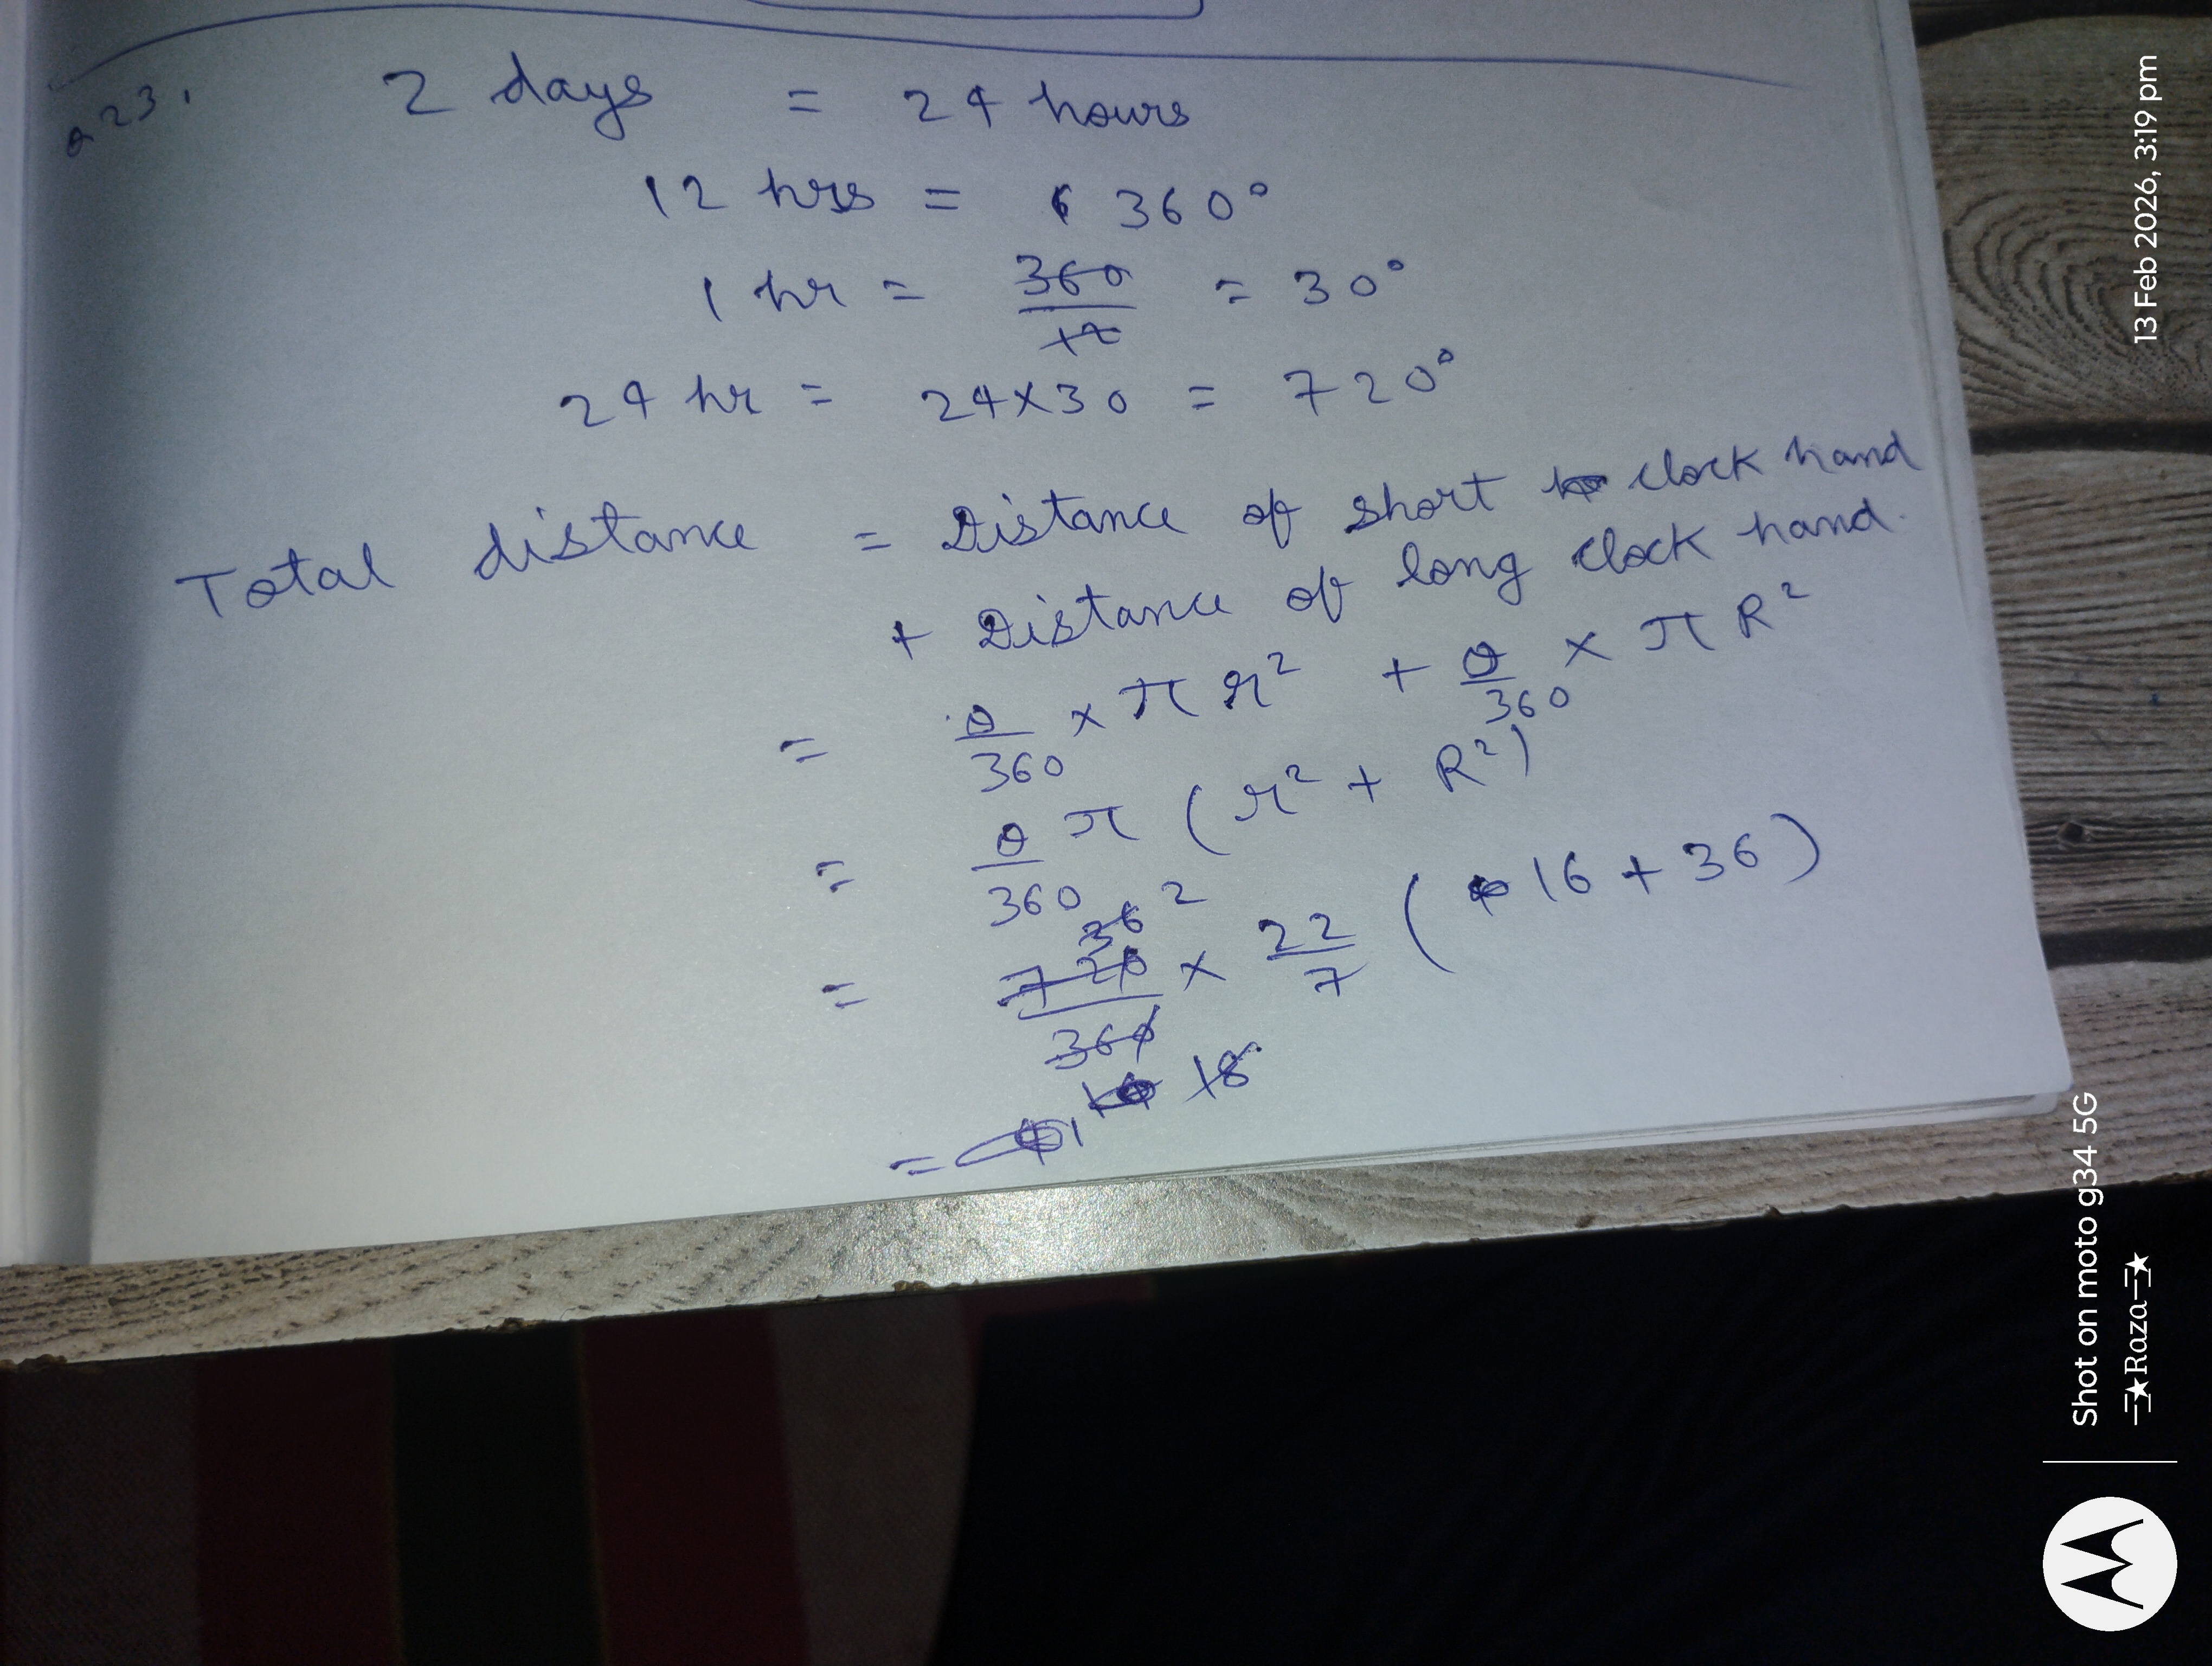 Q 23.
2 days = 24 hours
12 hrs = 360°
1 hr = 360/12 = 30°
24 hr = 24×30 = 720°
Total distance = Distance of short clock hand
+ Distance of long clock hand.
= θ/360 × π r² + θ/360 × π R²
= θ/360 π (r² + R²)
= 720/360 × 22/7 (16 + 36)
36 2
18
=
13 Feb 2026, 3:19 pm
Shot on moto g34 5G
Raza